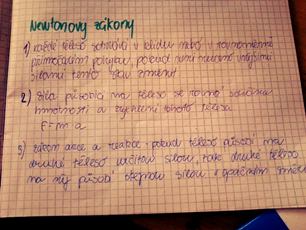 Newtonovy zákony
1) každé těleso setrvává v klidu nebo v rovnoměrném
přímočarém pohybu, pokud není nuceno vnějšími
silami tento stav změnit
2) síla působící na těleso se rovná součinu
hmotnosti a zrychlení tohoto tělesa
F=m a
3) zákon akce a reakce - pokud těleso působí na
druhé těleso určitou silou, tak druhé těleso
na něj působí stejnou silou v opačném směru